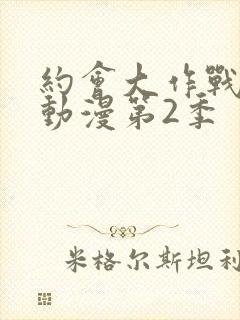 約會大作戰
動漫第2季
米格尔斯坦利